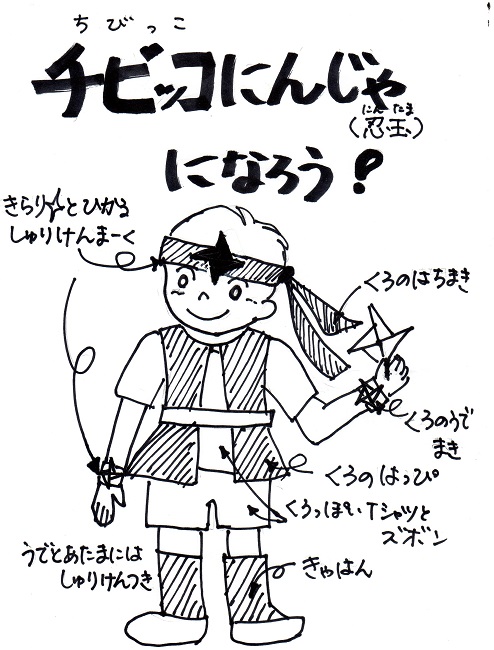 ちびっこ
チビッコにんじゃ
にんたま
(忍玉)
になろう?
きらり☆とひかる
しゅりけんまーく
くろのはちまき
くろのうで
まき
くろのはっぴ
くろっぽいTシャツと
ズボン
うでとあたまには
しゅりけんつき
きゃはん